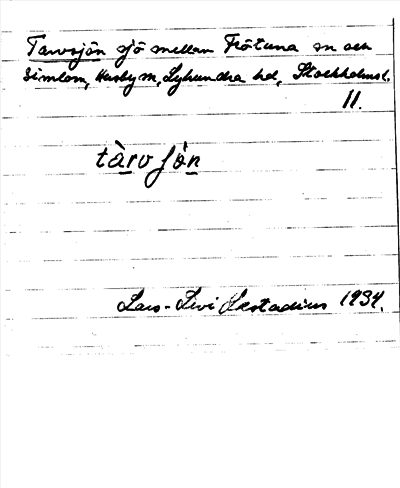 Tarvsjön sjö mellan Frötuna sn och
Simlom, Husby sn, Lyhundra hd, Stockholmsl.
11.
tàrvʃön
Lars-Levi Læstadius 1934.